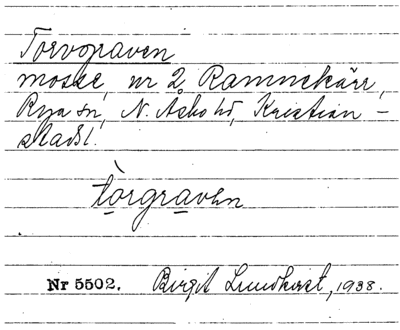 Torvgraven
mosse, nr 2, Ramnekärr,
Rya sn, N. Åsbo hd, Kristian-
stads l.
tòrgraven
Nr 5502. Birgit Lundkvist, 1938.